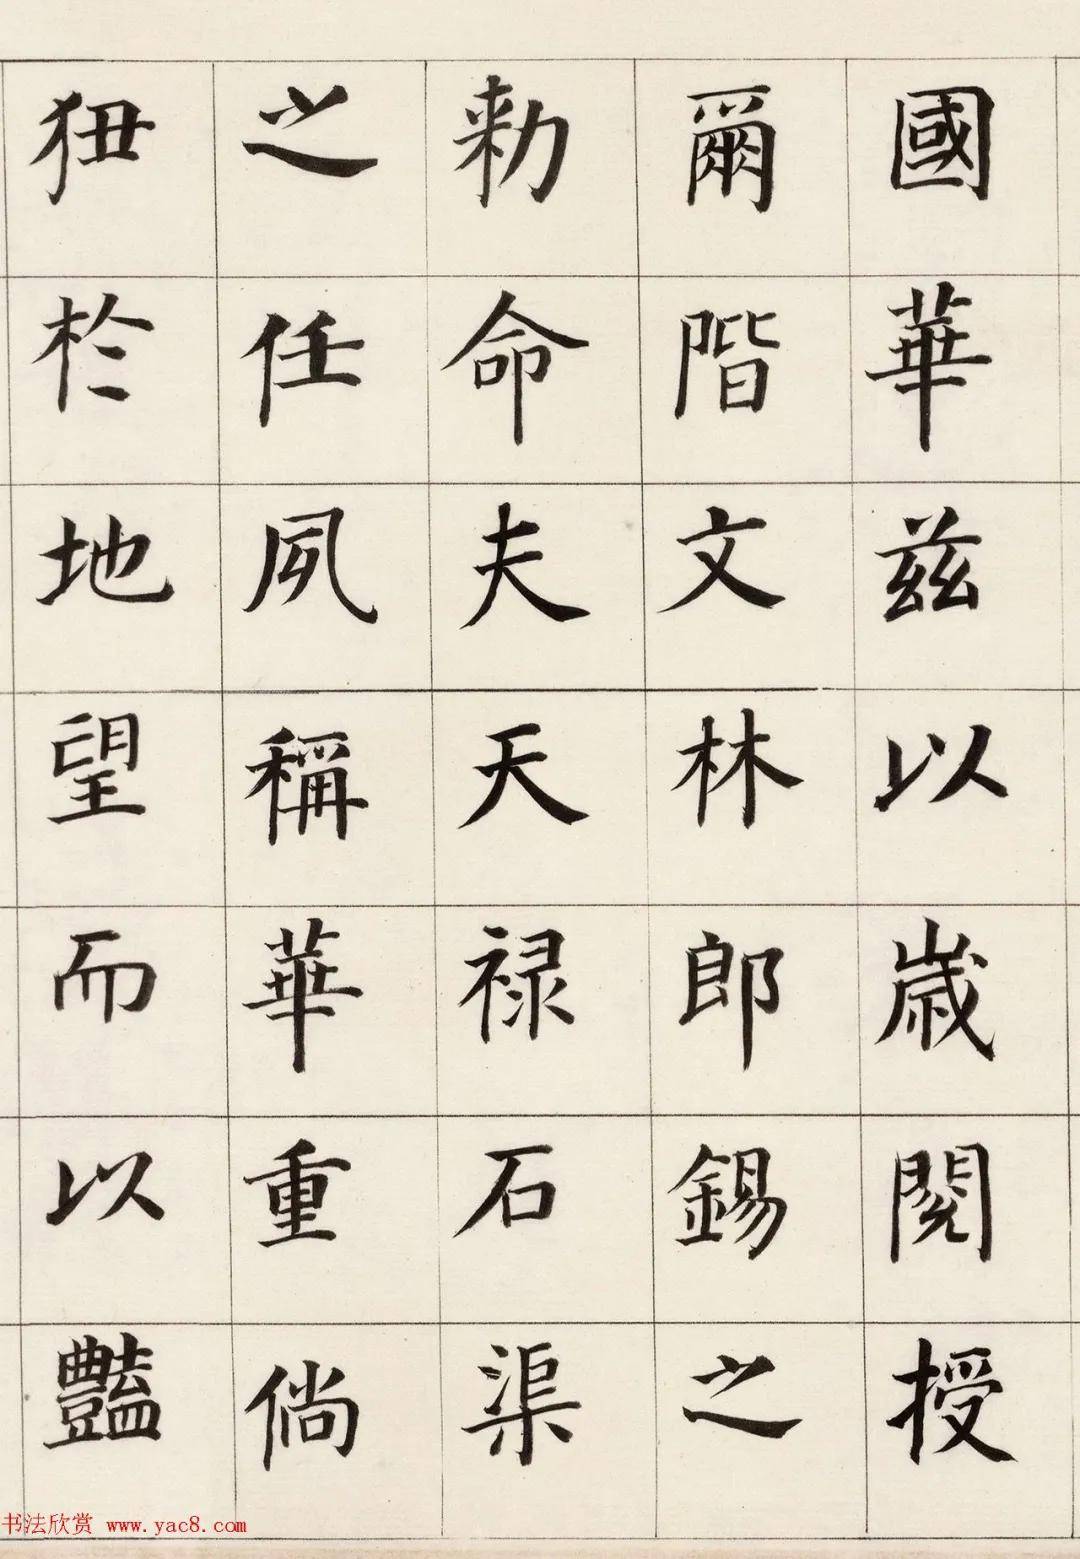 國華茲以歲閱授
爾階文林郎錫之
勅命夫天祿石渠
之任夙稱華重倘
狃於地望而以豔
书法欣赏 www.yac8.com